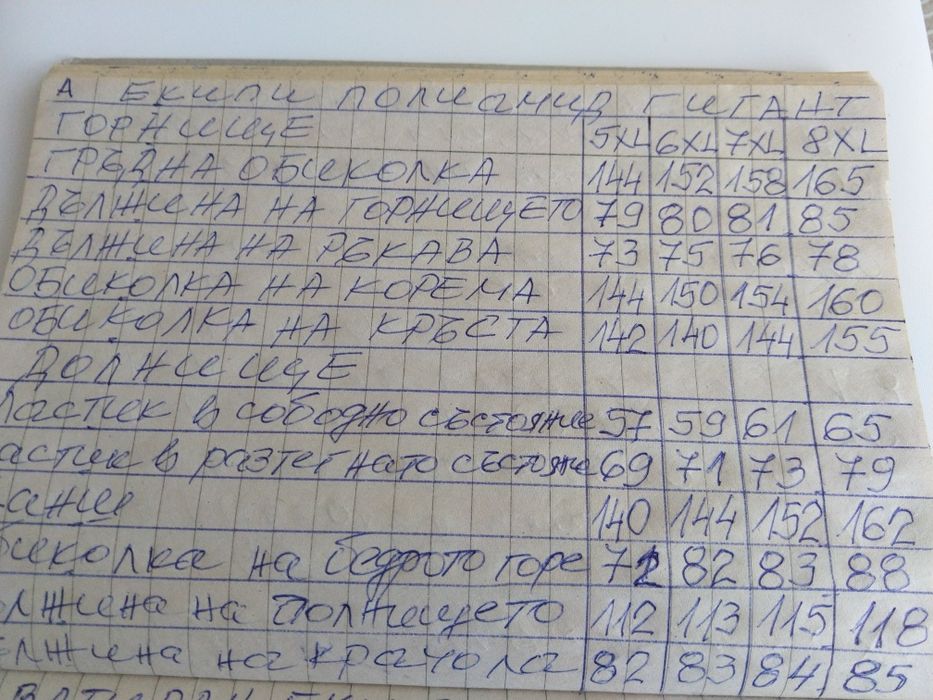 А ЕКИПИ ПОЛИАМИД ГИГАНТ
ГОРНИЩЕ 5XL 6XL 7XL 8XL
ГРЪДНА ОБИКОЛКА 144 152 158 165
ДЪЛЖИНА НА ГОРНИЩЕТО 79 80 81 85
ДЪЛЖИНА НА РЪКАВА 73 75 76 78
ОБИКОЛКА НА КОРЕМА 144 150 154 160
ОБИКОЛКА НА КРЪСТА 142 140 144 155
ДОЛНИЩЕ
ластик в сободно състояние 57 59 61 65
астик в разтегнато състояние 69 71 73 79
анш 140 144 152 162
биколка на бедрото горе 72 82 83 88
лжина на долнището 112 113 115 118
лжина на крачола 82 83 84 85